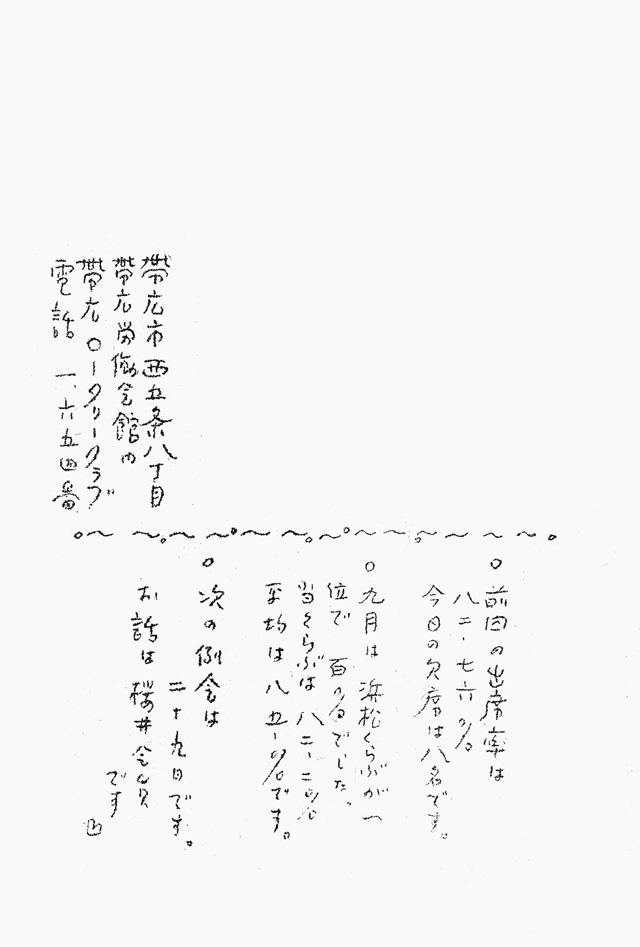 帯広市西五条八丁目
帯広労働会館内
帯広ロータリークラブ
電話 一、六五四番
○前回の出席率は
八二・七六%
今日の欠席は八名です。
○九月は浜松くらぶが一
位で 百%でした、
当くらぶは八二・二%
平均は八五・%です。
○次の例会は
二十九日です。
お話は桜井会員
です